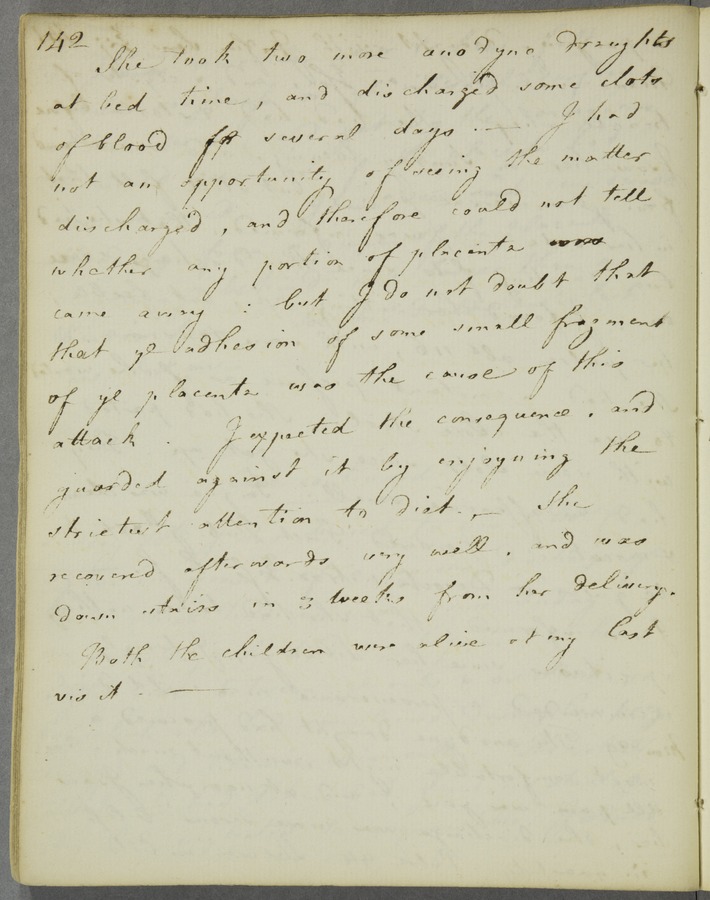 142
She took two more anodyne draughts
at bed time, and discharged some clots
of blood for several days. — I had
not an opportunity of seeing the matter
discharged, and therefore could not tell
whether any portion of placenta
came away : but I do not doubt that
that ye adhesion of some small fragment
of ye placenta was the cause of this
attack. I expected the consequence, and
guarded against it by enjoyning the
strictest attention to diet. — She
recovered afterwards very well, and was
down stairs in 3 weeks from her delivery.
Both the children were alive at my last
visit. —